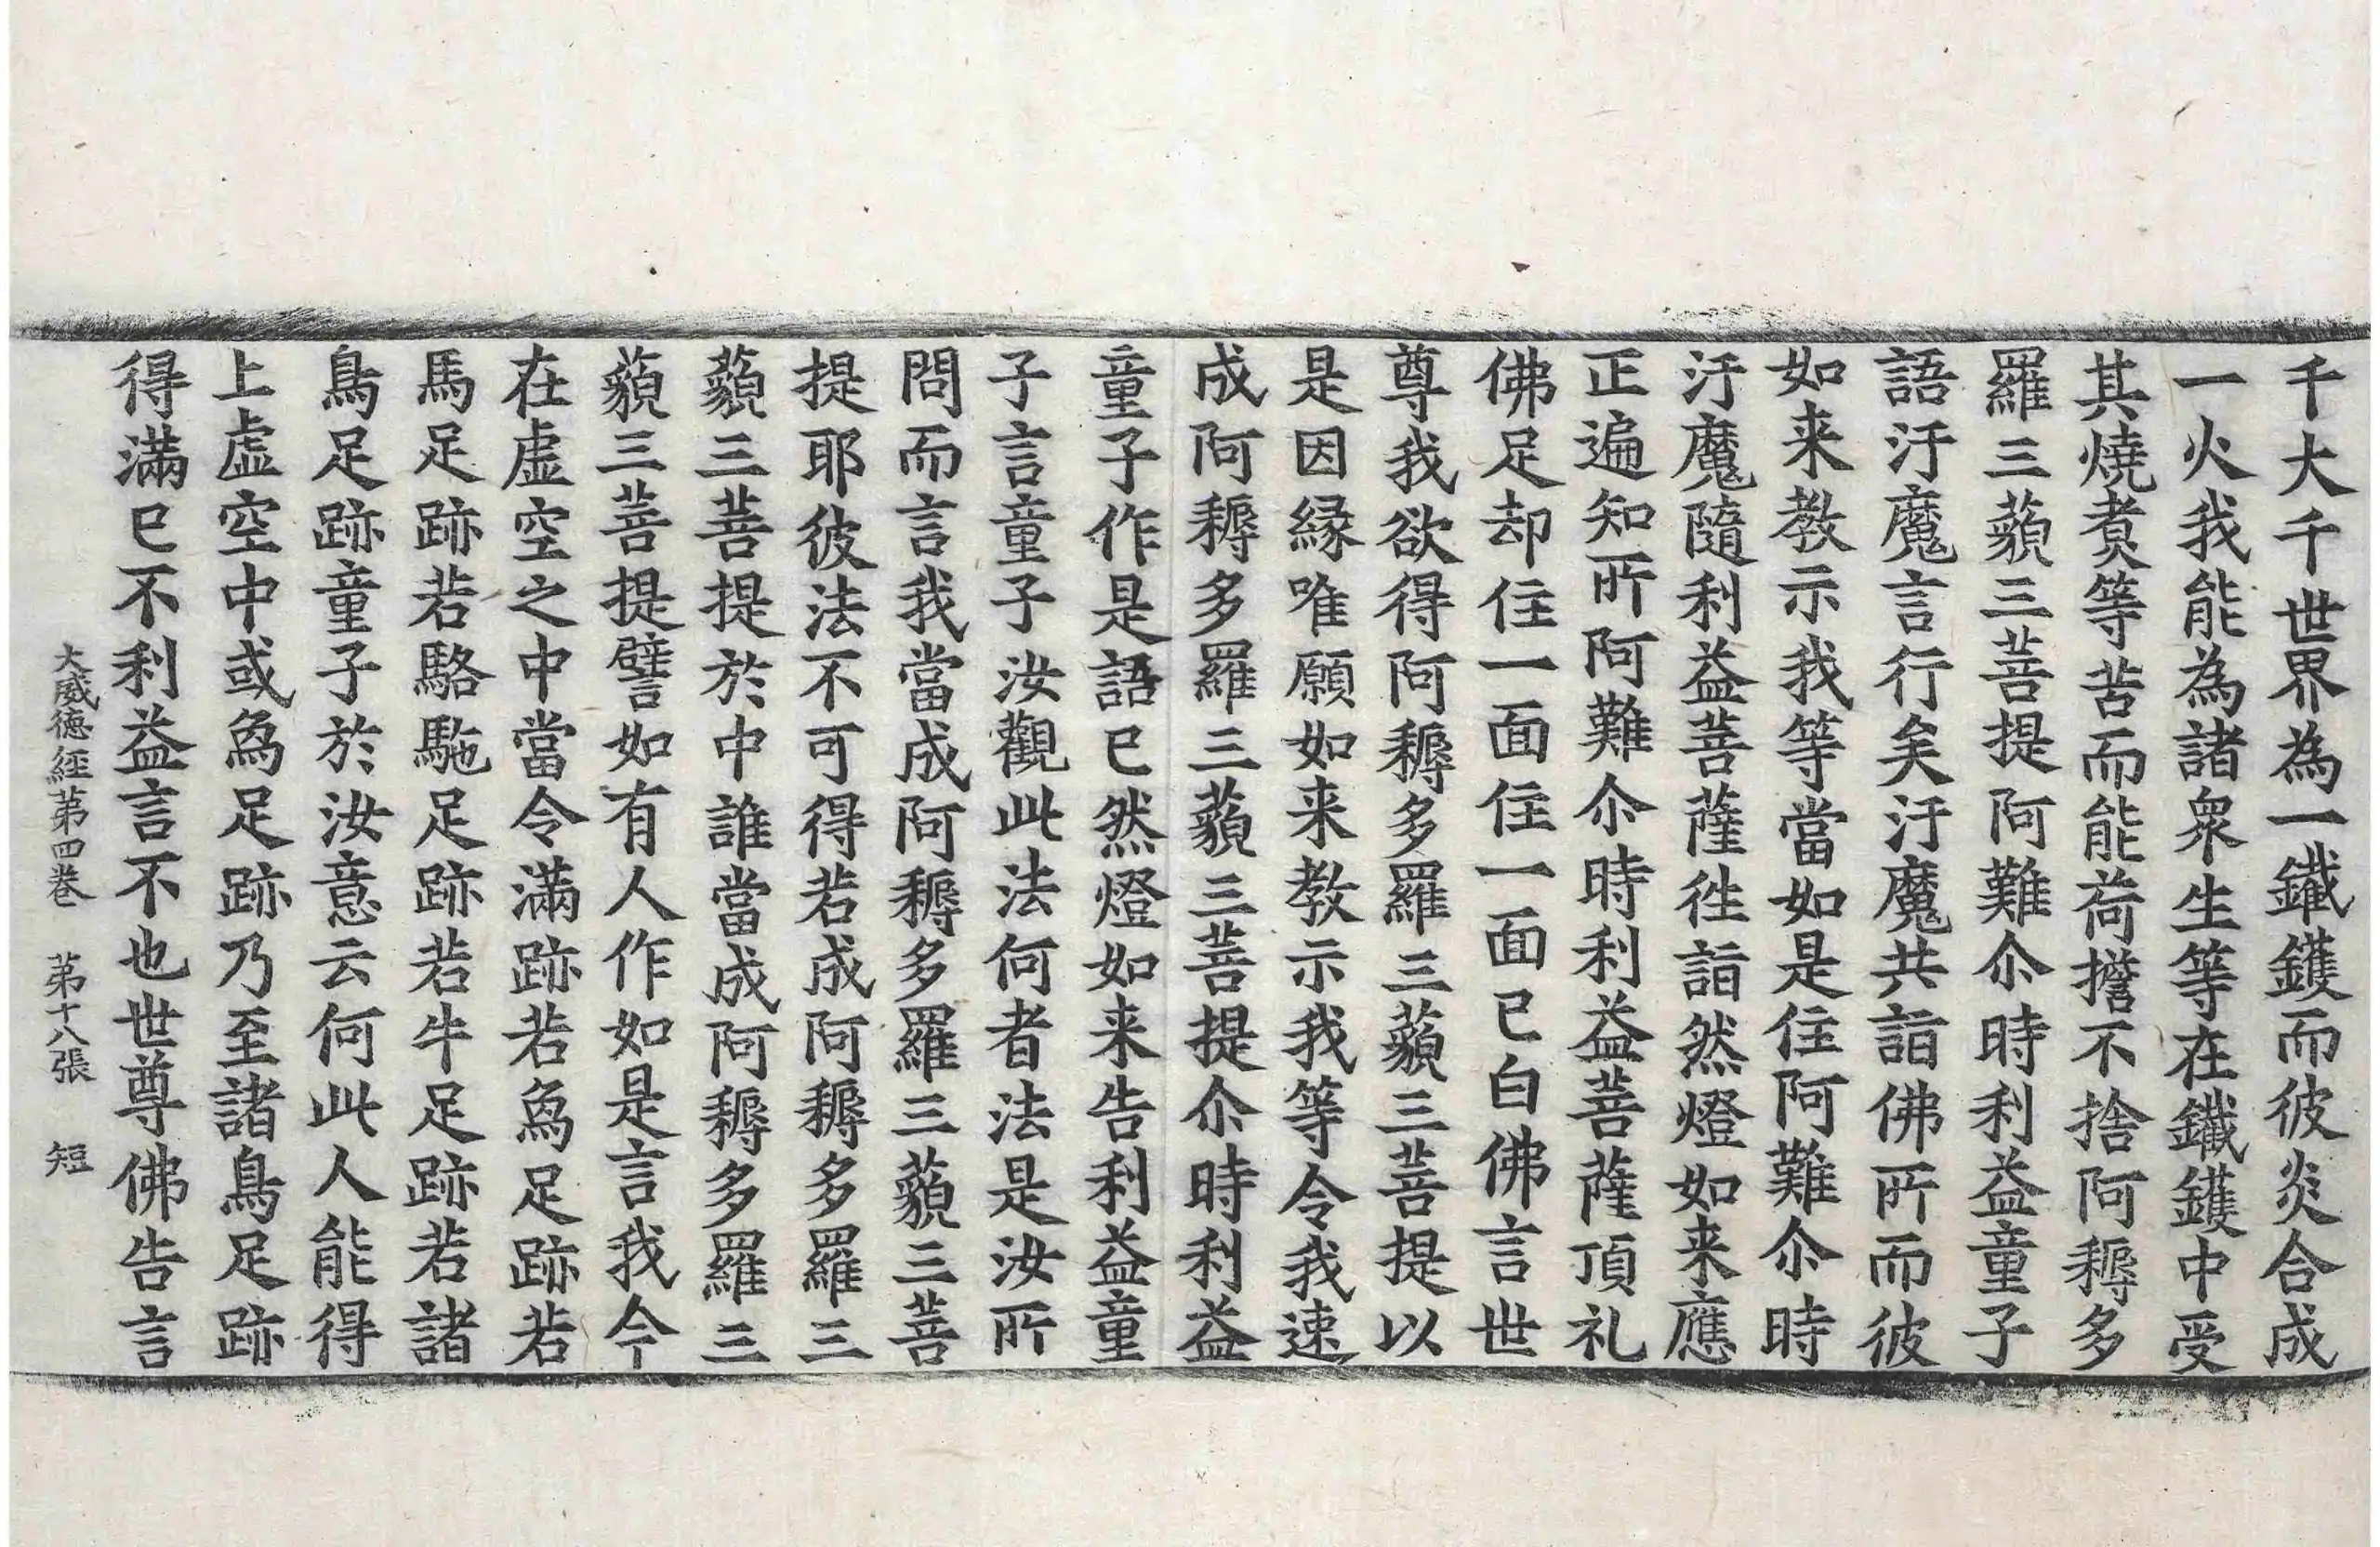 千大千世界為一鐵鑊而彼炎合成
一火我能為諸衆生等在鐵鑊中受
其燒煑等苦而能荷擔不捨阿耨多
羅三藐三菩提阿難尒時利益童子
語汙魔言行矣汙魔共詣佛所而彼
如来教示我等當如是住阿難尒時
汙魔隨利益菩薩徃詣然燈如来應
正遍知所阿難尒時利益菩薩頂礼
佛足却住一面住一面已白佛言世
尊我欲得阿耨多羅三藐三菩提以
是因緣唯願如来教示我等令我速
成阿耨多羅三藐三菩提尒時利益
童子作是語已然燈如来告利益童
子言童子汝觀此法何者法是汝所
問而言我當成阿耨多羅三藐三菩
提耶彼法不可得若成阿耨多羅三
藐三菩提於中誰當成阿耨多羅三
藐三菩提譬如有人作如是言我今
在虛空之中當令滿跡若為足跡若
馬足跡若駱駞足跡若牛足跡若諸
鳥足跡童子於汝意云何此人能得
上虛空中或為足跡乃至諸鳥足跡
得滿已不利益言不也世尊佛告言
大威德經第四卷　第十八張　短